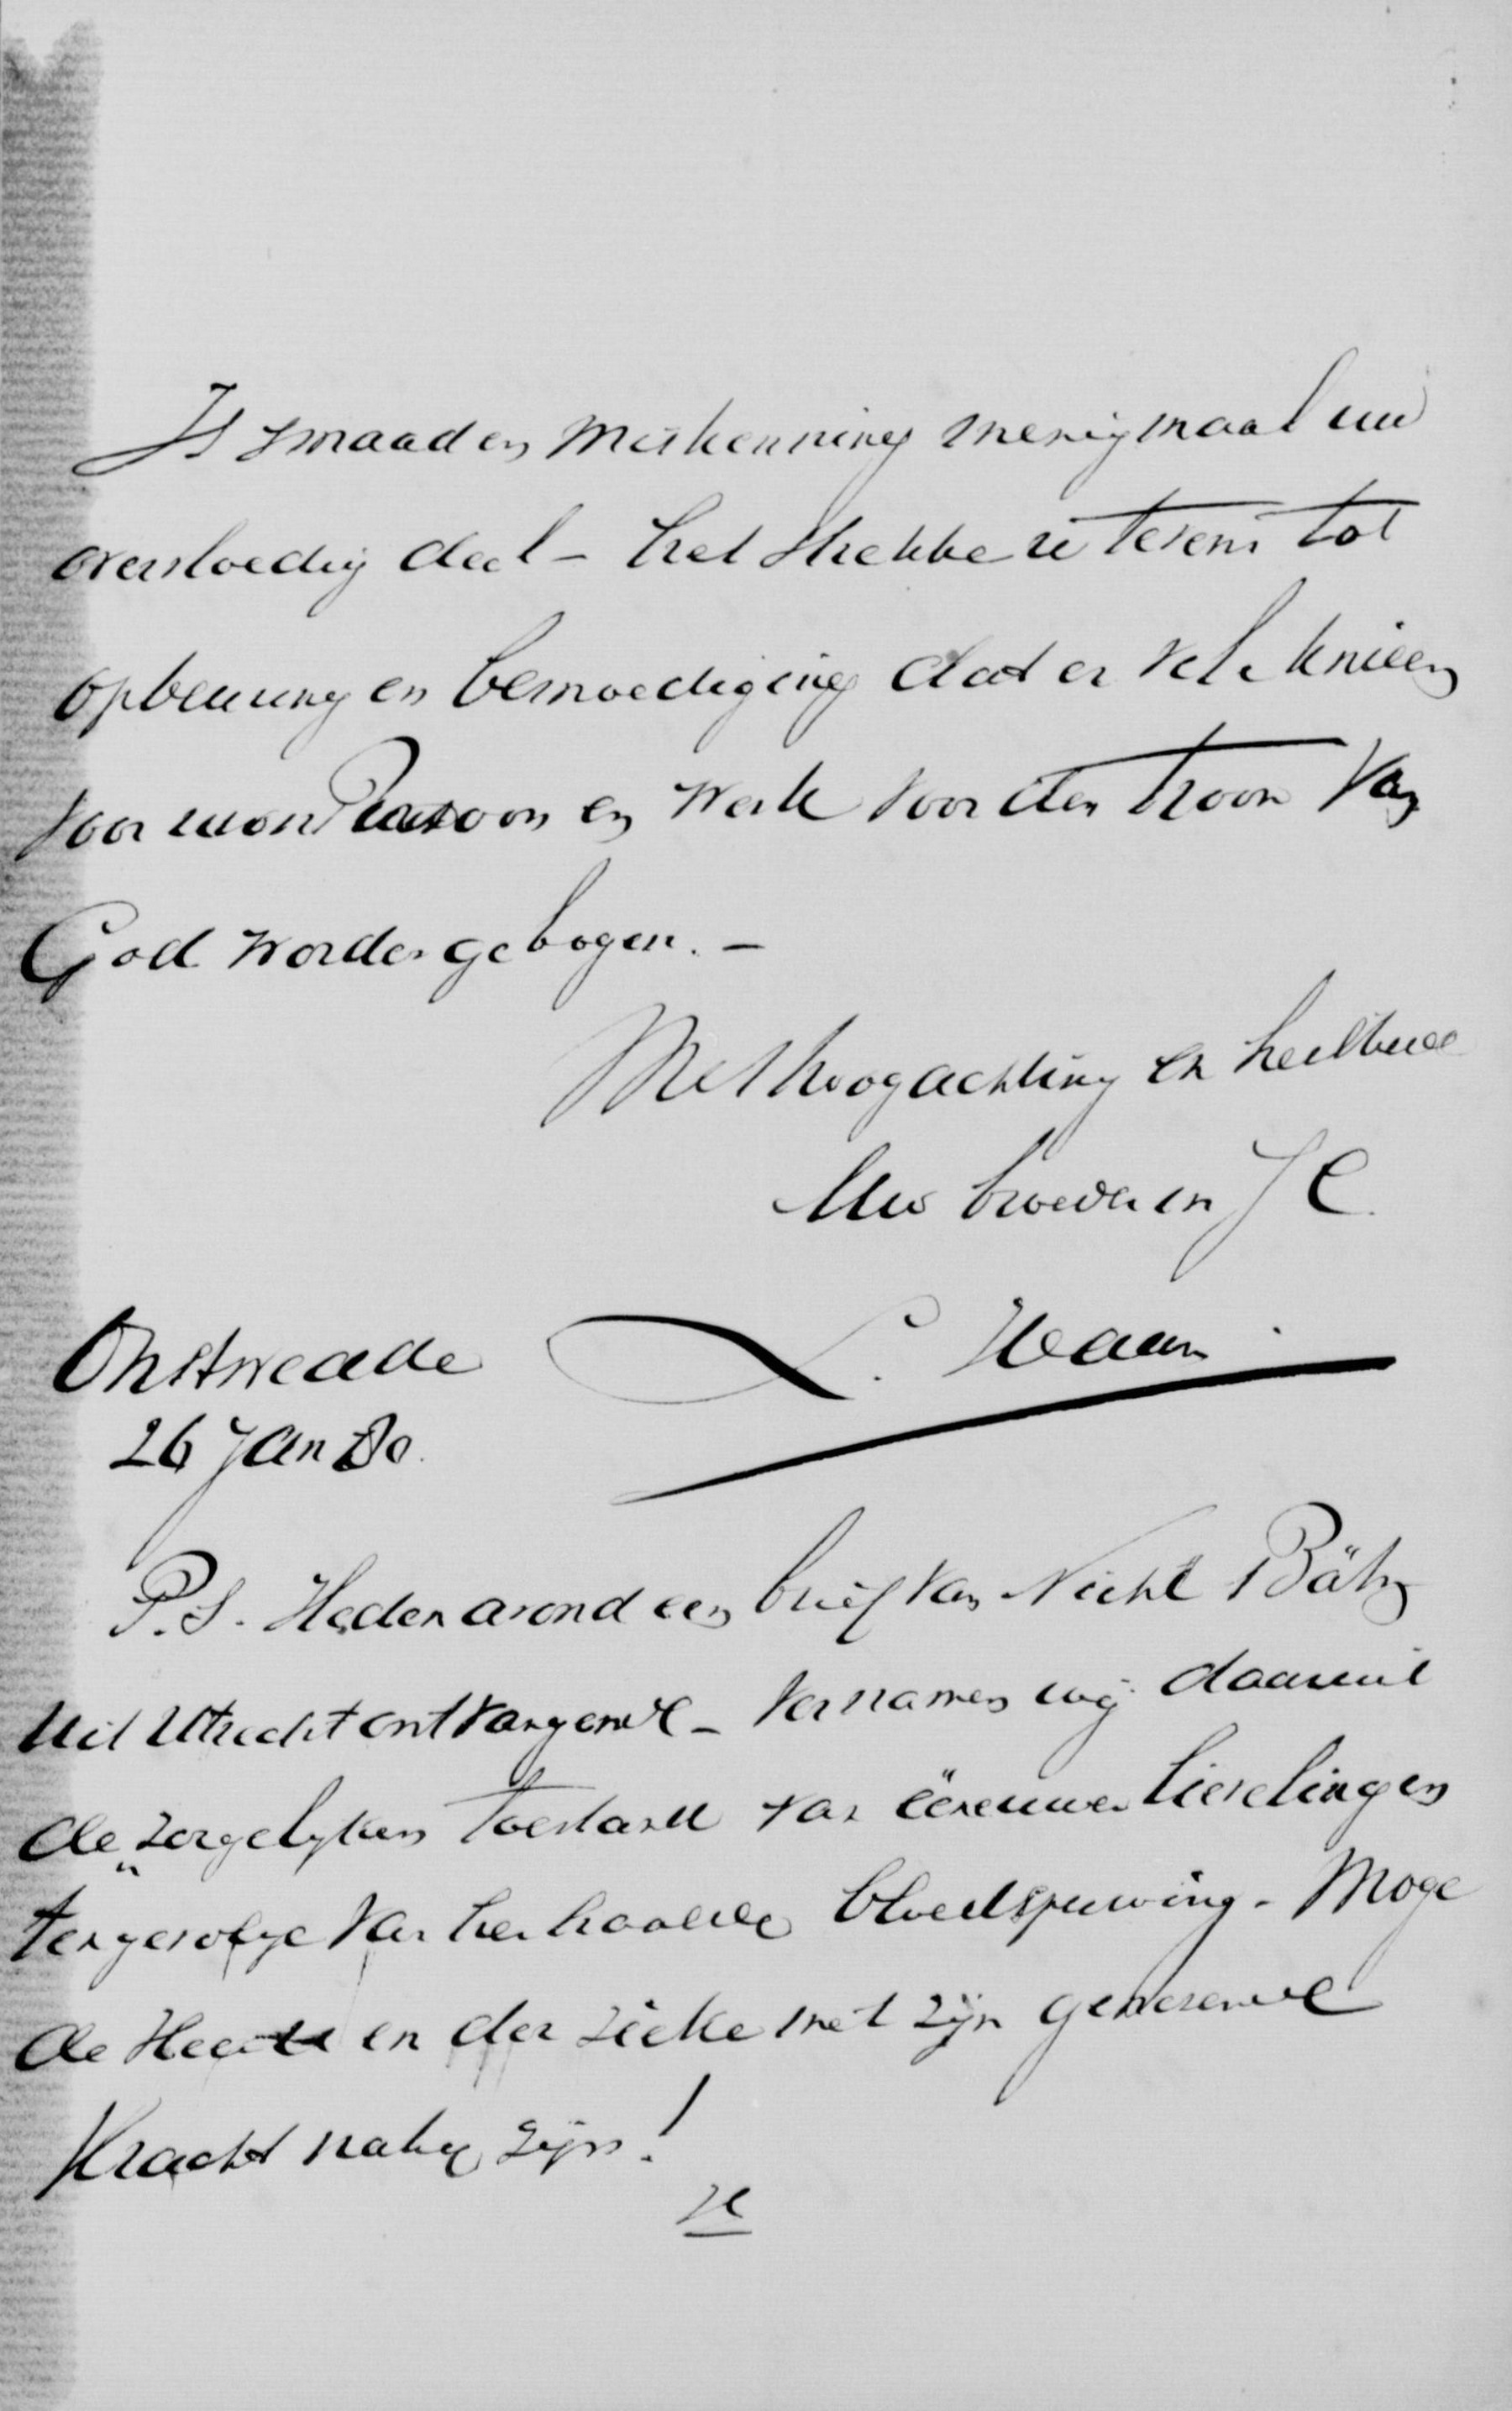 Is smaad en miskenning menigmaal uw
overvloedig deel - het strekke u tevens tot
opbeuring en bemoediging dat er vele knieen
voor uwen Persoon en werk voor den troon van
God worden gebogen. -
Met hoogachting en heilbede
Uw broeder in J C.
L. Haan
Onstwedde
26 Jan 80.
P.S. Heden avond een brief van Nicht Bätz
uit Utrecht ontvangende - vernamen wij daaruit
de zorgelijken toestand van één uwer lievelingen
tengevolge van herhaalde bloedspuwing. Moge
de Heer en der zieke met zijn genezende
Kracht nabij zijn!
H